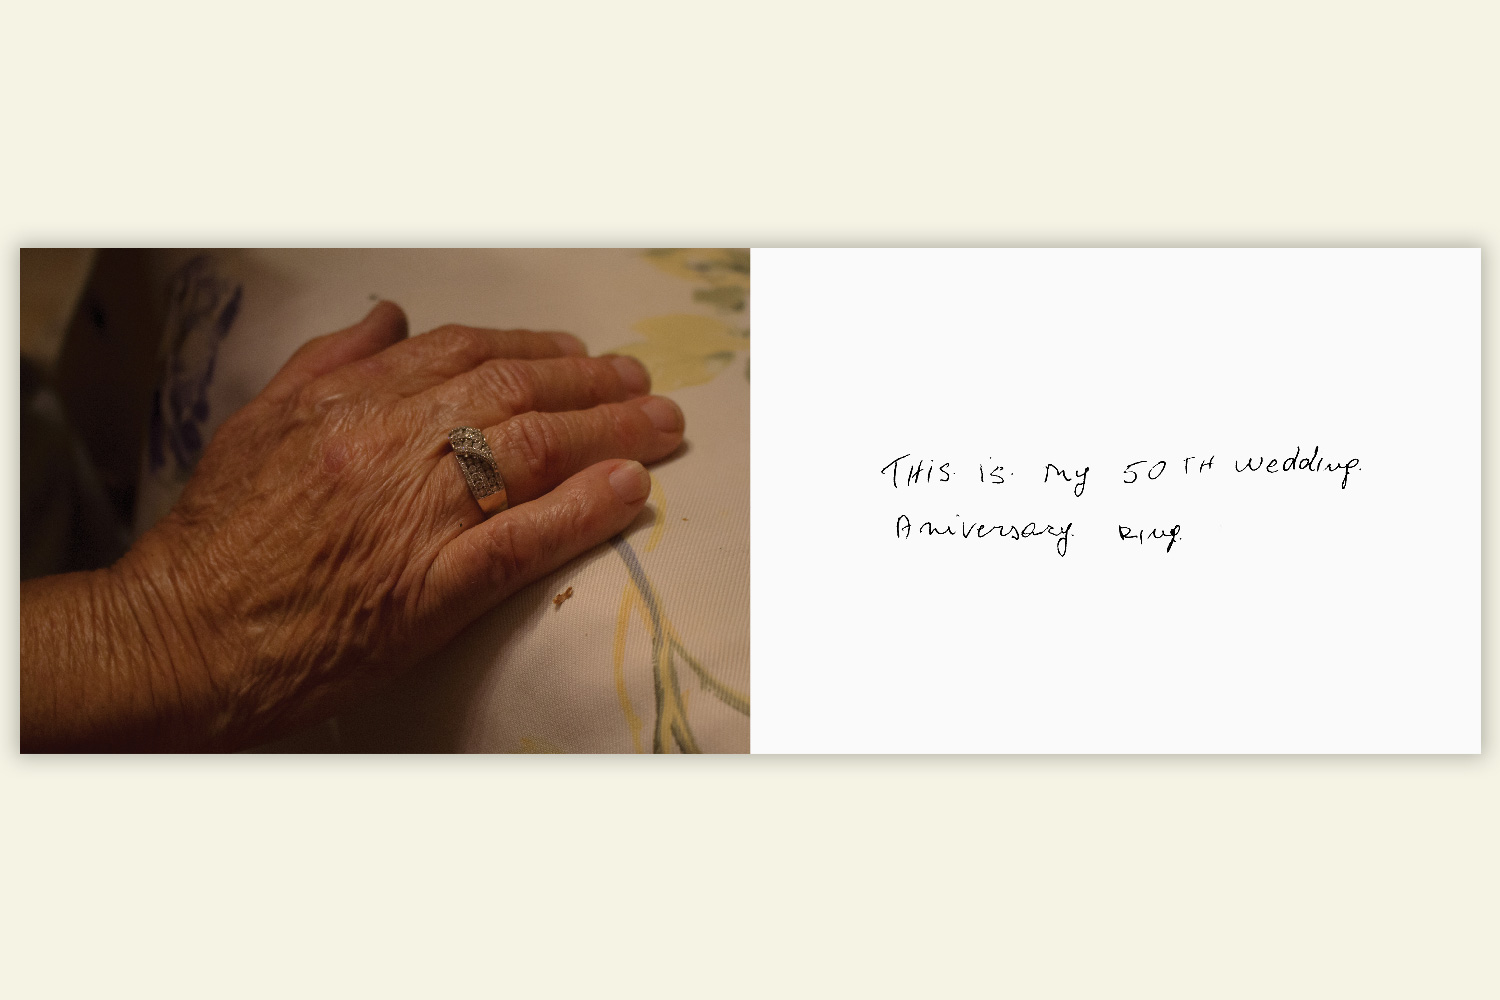 THis is my 50TH wedding
Aniversary Ring.